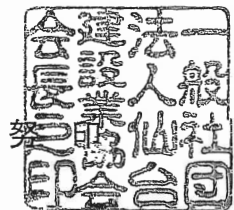 一般社団
法人仙台
建設業協会
会長之印
努 印